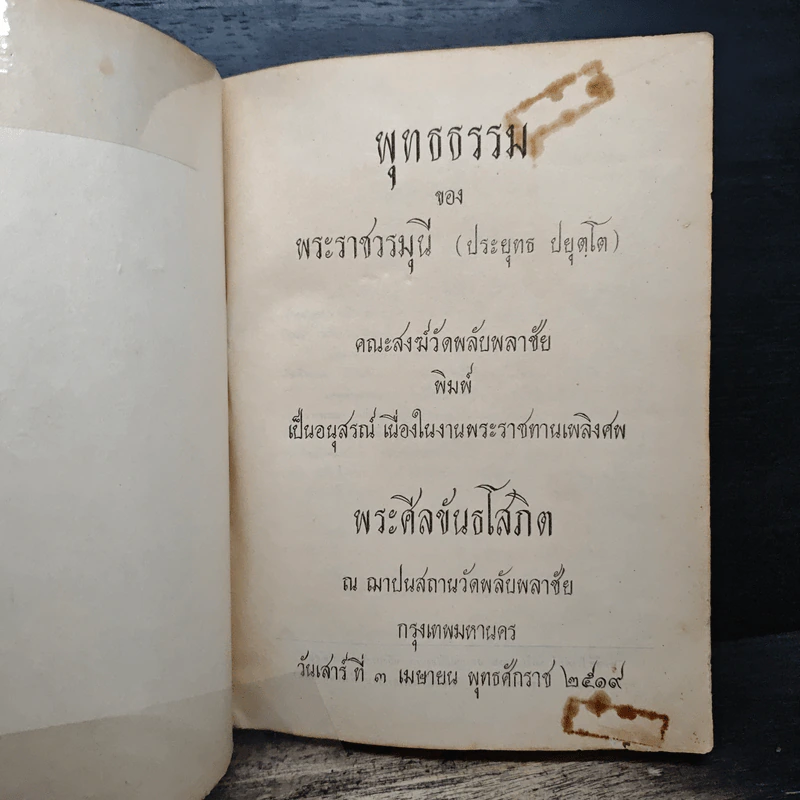 พุทธธรรม
ของ
พระราชวรมุนี (ประยุทธ ปยุตฺโต)
คณะสงฆ์วัดพลับพลาชัย
พิมพ์
เป็นอนุสรณ์ เนื่องในงานพระราชทานเพลิงศพ
พระศีลขันธโสภิต
ณ ฌาปนสถานวัดพลับพลาชัย
กรุงเทพมหานคร
วันเสาร์ ที่ ๓ เมษายน พุทธศักราช ๒๕๑๙